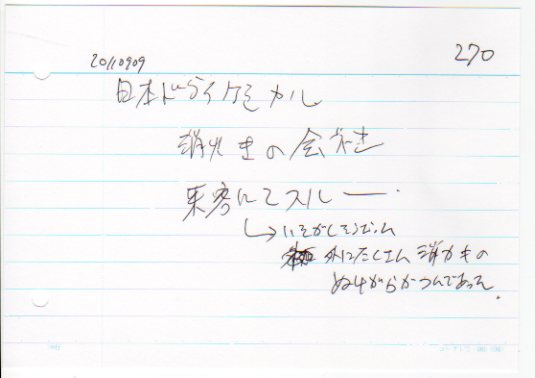 20110909
270
日本ドライケミカル
消火きの会社
来客にてスルー.
↳いそがしそうでした
外にたくさん消かきの
ぬけがらがつんであった.